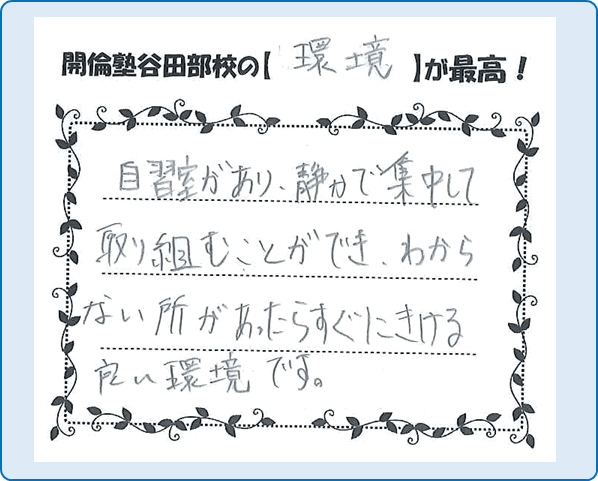 開倫塾谷田部校の【 環境 】が最高！
自習室があり、静かで集中して
取り組むことができ、わから
ない所があったらすぐにきける
良い環境です。